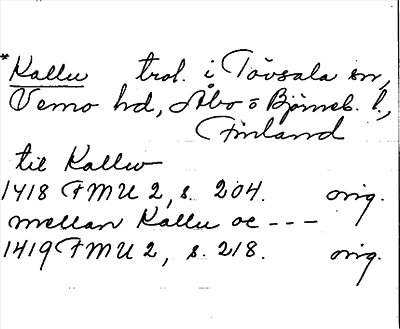 *Kallu trol. i Tövsala sn,
Vemo hd, Åbo o Björneb. l.,
Finland
til Kallu
1418 FMU 2, s. 204. orig.
mellan Kallu oc ---
1419 FMU 2, s. 218. orig.